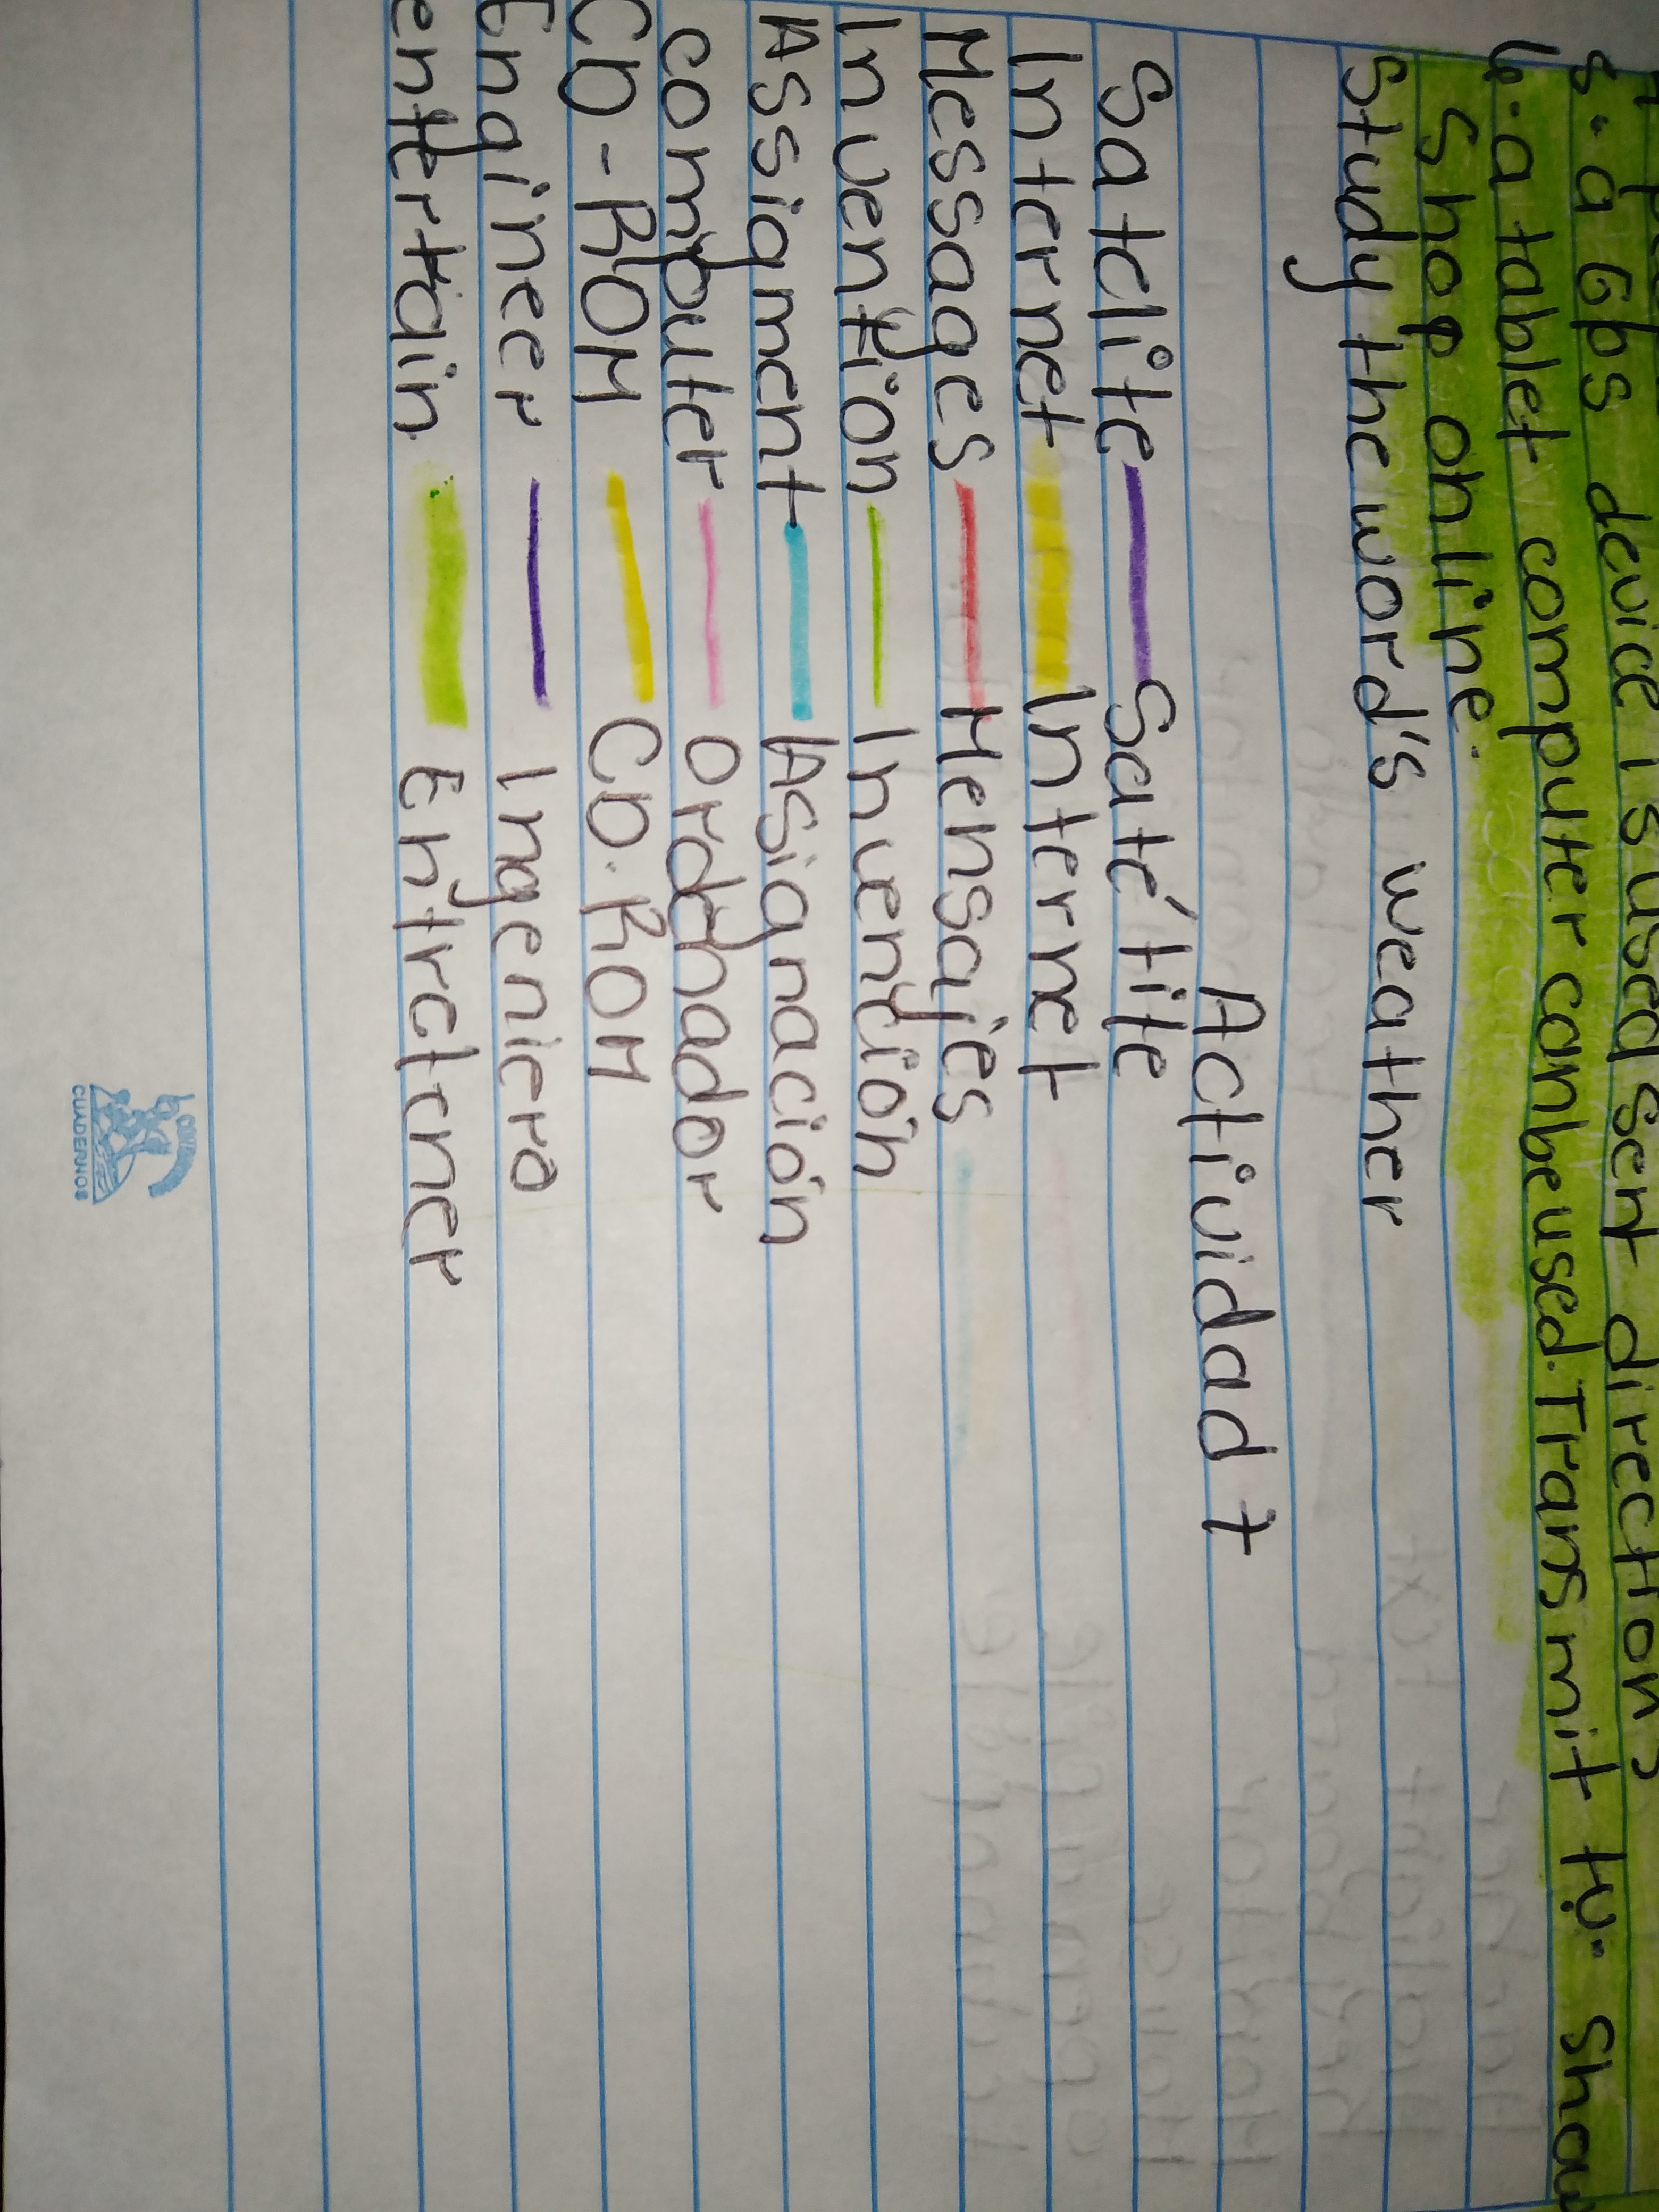 5. a Gps device is used sent directions
6. a tablet computer can be used. Transmit tv. Show
Shop online.
Study the word's weather
Actividad 7
Satelite Saté'tite
Internet Internet
Messages Mensajes
Invention Invención
Assigment Asignación
computer Ordenador
CD-ROM CD.ROM
Engineer Ingeniero
entertain Entretener
CUADERNOS